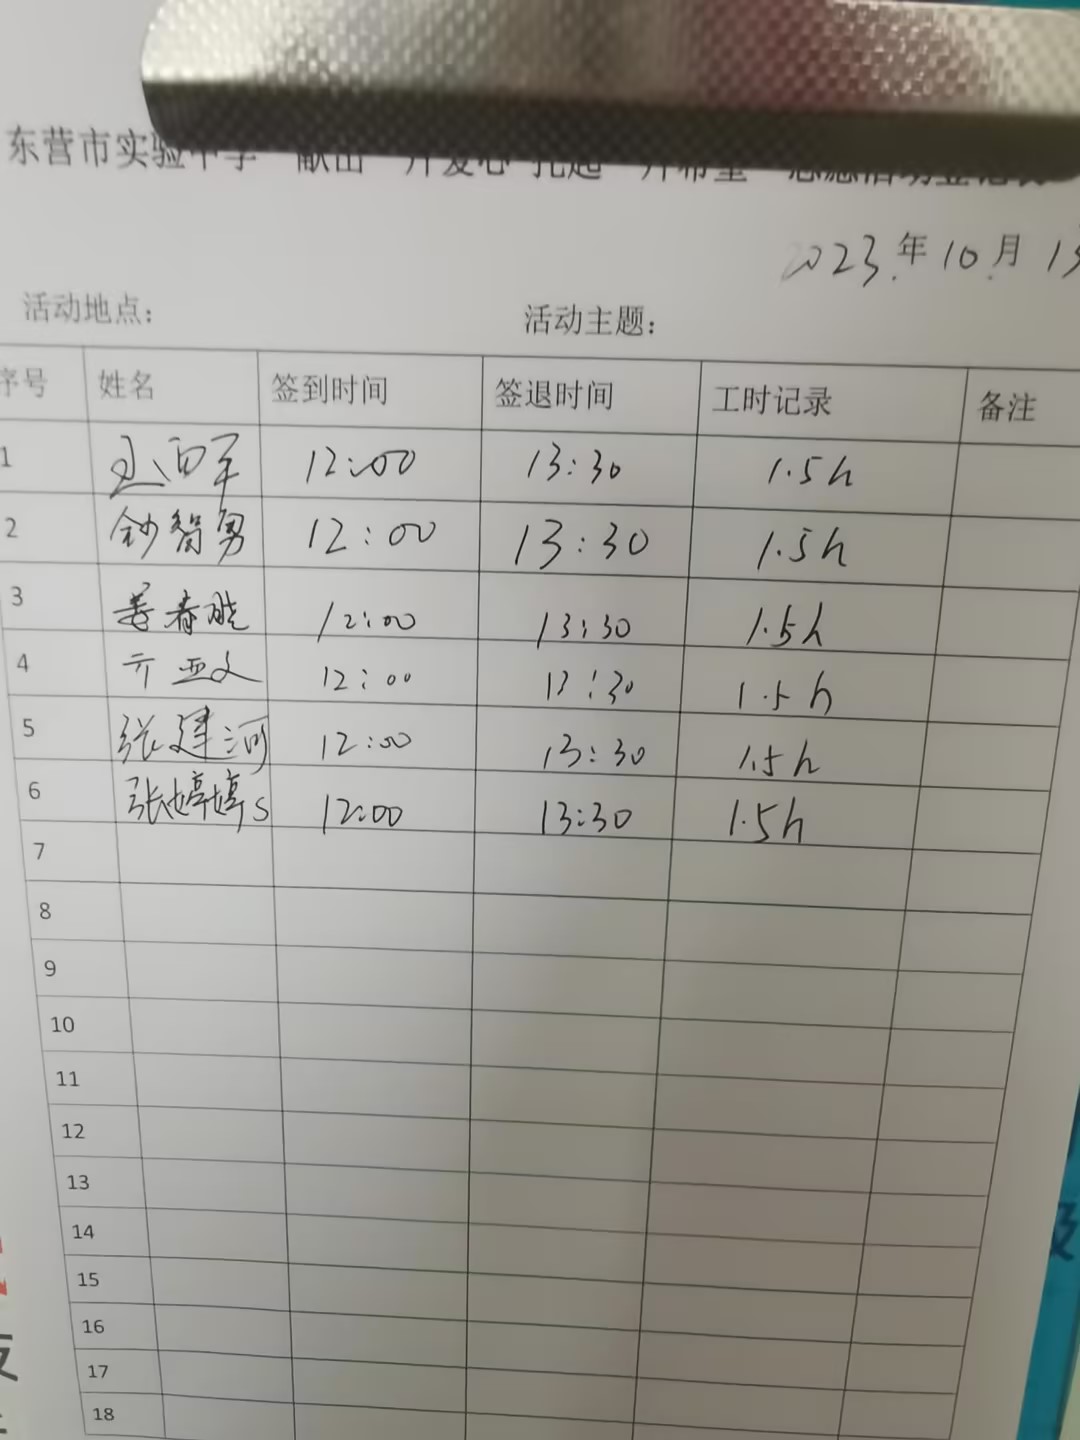 东营市实验中学“献出一片爱心 托起一片希望”志愿活动登记表
2023年10月13
活动地点： 活动主题：
序号 姓名 签到时间 签退时间 工时记录 备注
1 12:00 13:30 1.5h
2 钞智勇 12:00 13:30 1.5h
3 姜春晓 12:00 13:30 1.5h
4 亓亚文 12:00 13:30 1.5h
5 张建河 12:00 13:30 1.5h
6 张婷婷s 12:00 13:30 1.5h
7
8
9
10
11
12
13
14
15
16
17
18